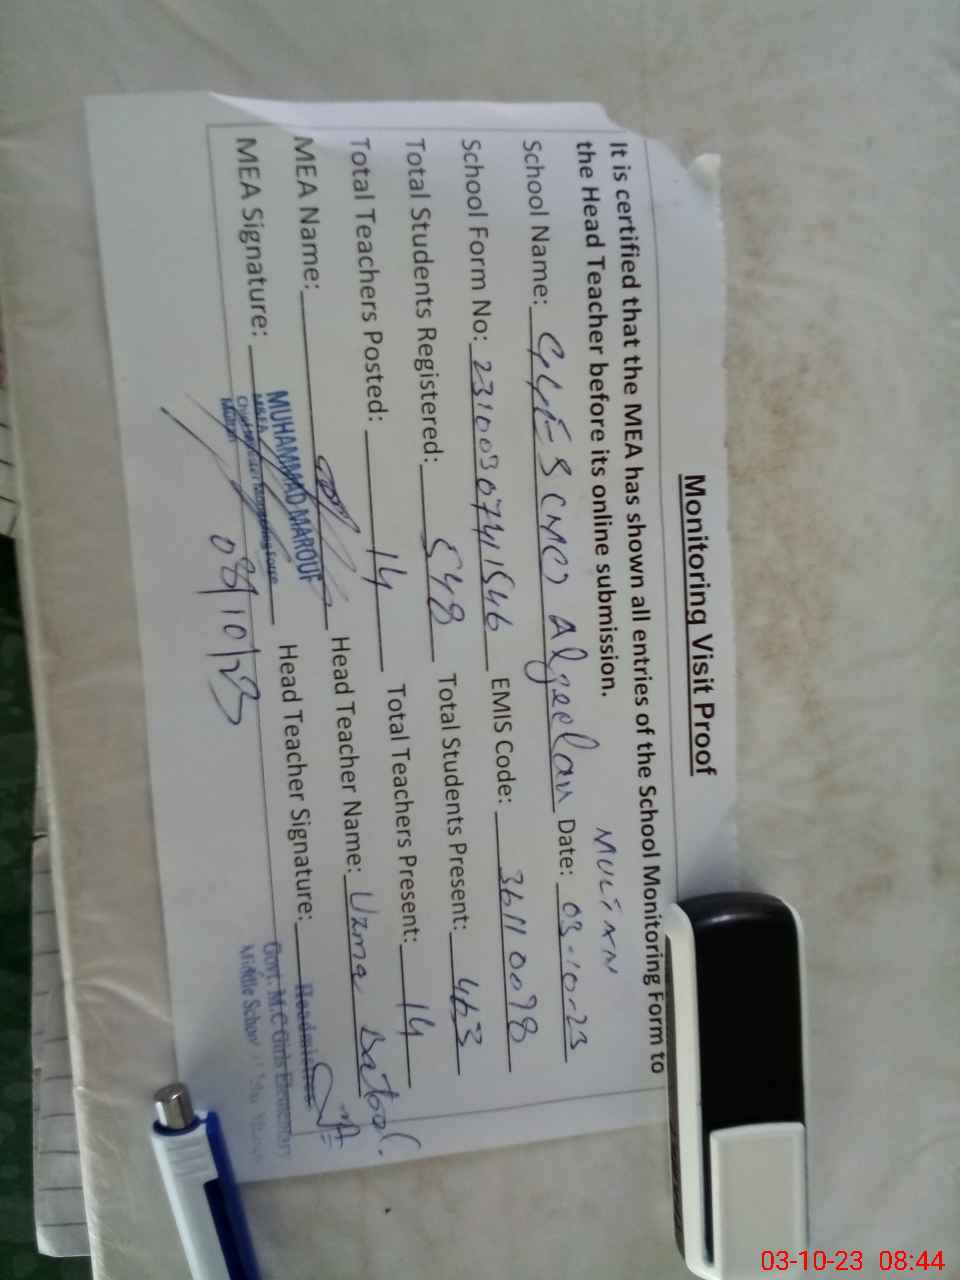 Monitoring Visit Proof
It is certified that the MEA has shown all entries of the School Monitoring Form to
the Head Teacher before its online submission.
MULTAN
School Name: GGES (MC) Algeelan Date: 03-10-23
School Form No: 23100307411546 EMIS Code: 36110098
Total Students Registered: 548 Total Students Present: 463
Total Teachers Posted: 14 Total Teachers Present: 14
MEA Name: Head Teacher Name: Uzma Batool.
MUHAMMAD MAROUF
MEA
MEA Signature: Head Teacher Signature:
Headmistress
Govt. M.C Girls Elementary
Middle School
Multan
03/10/23
03-10-23 08:44